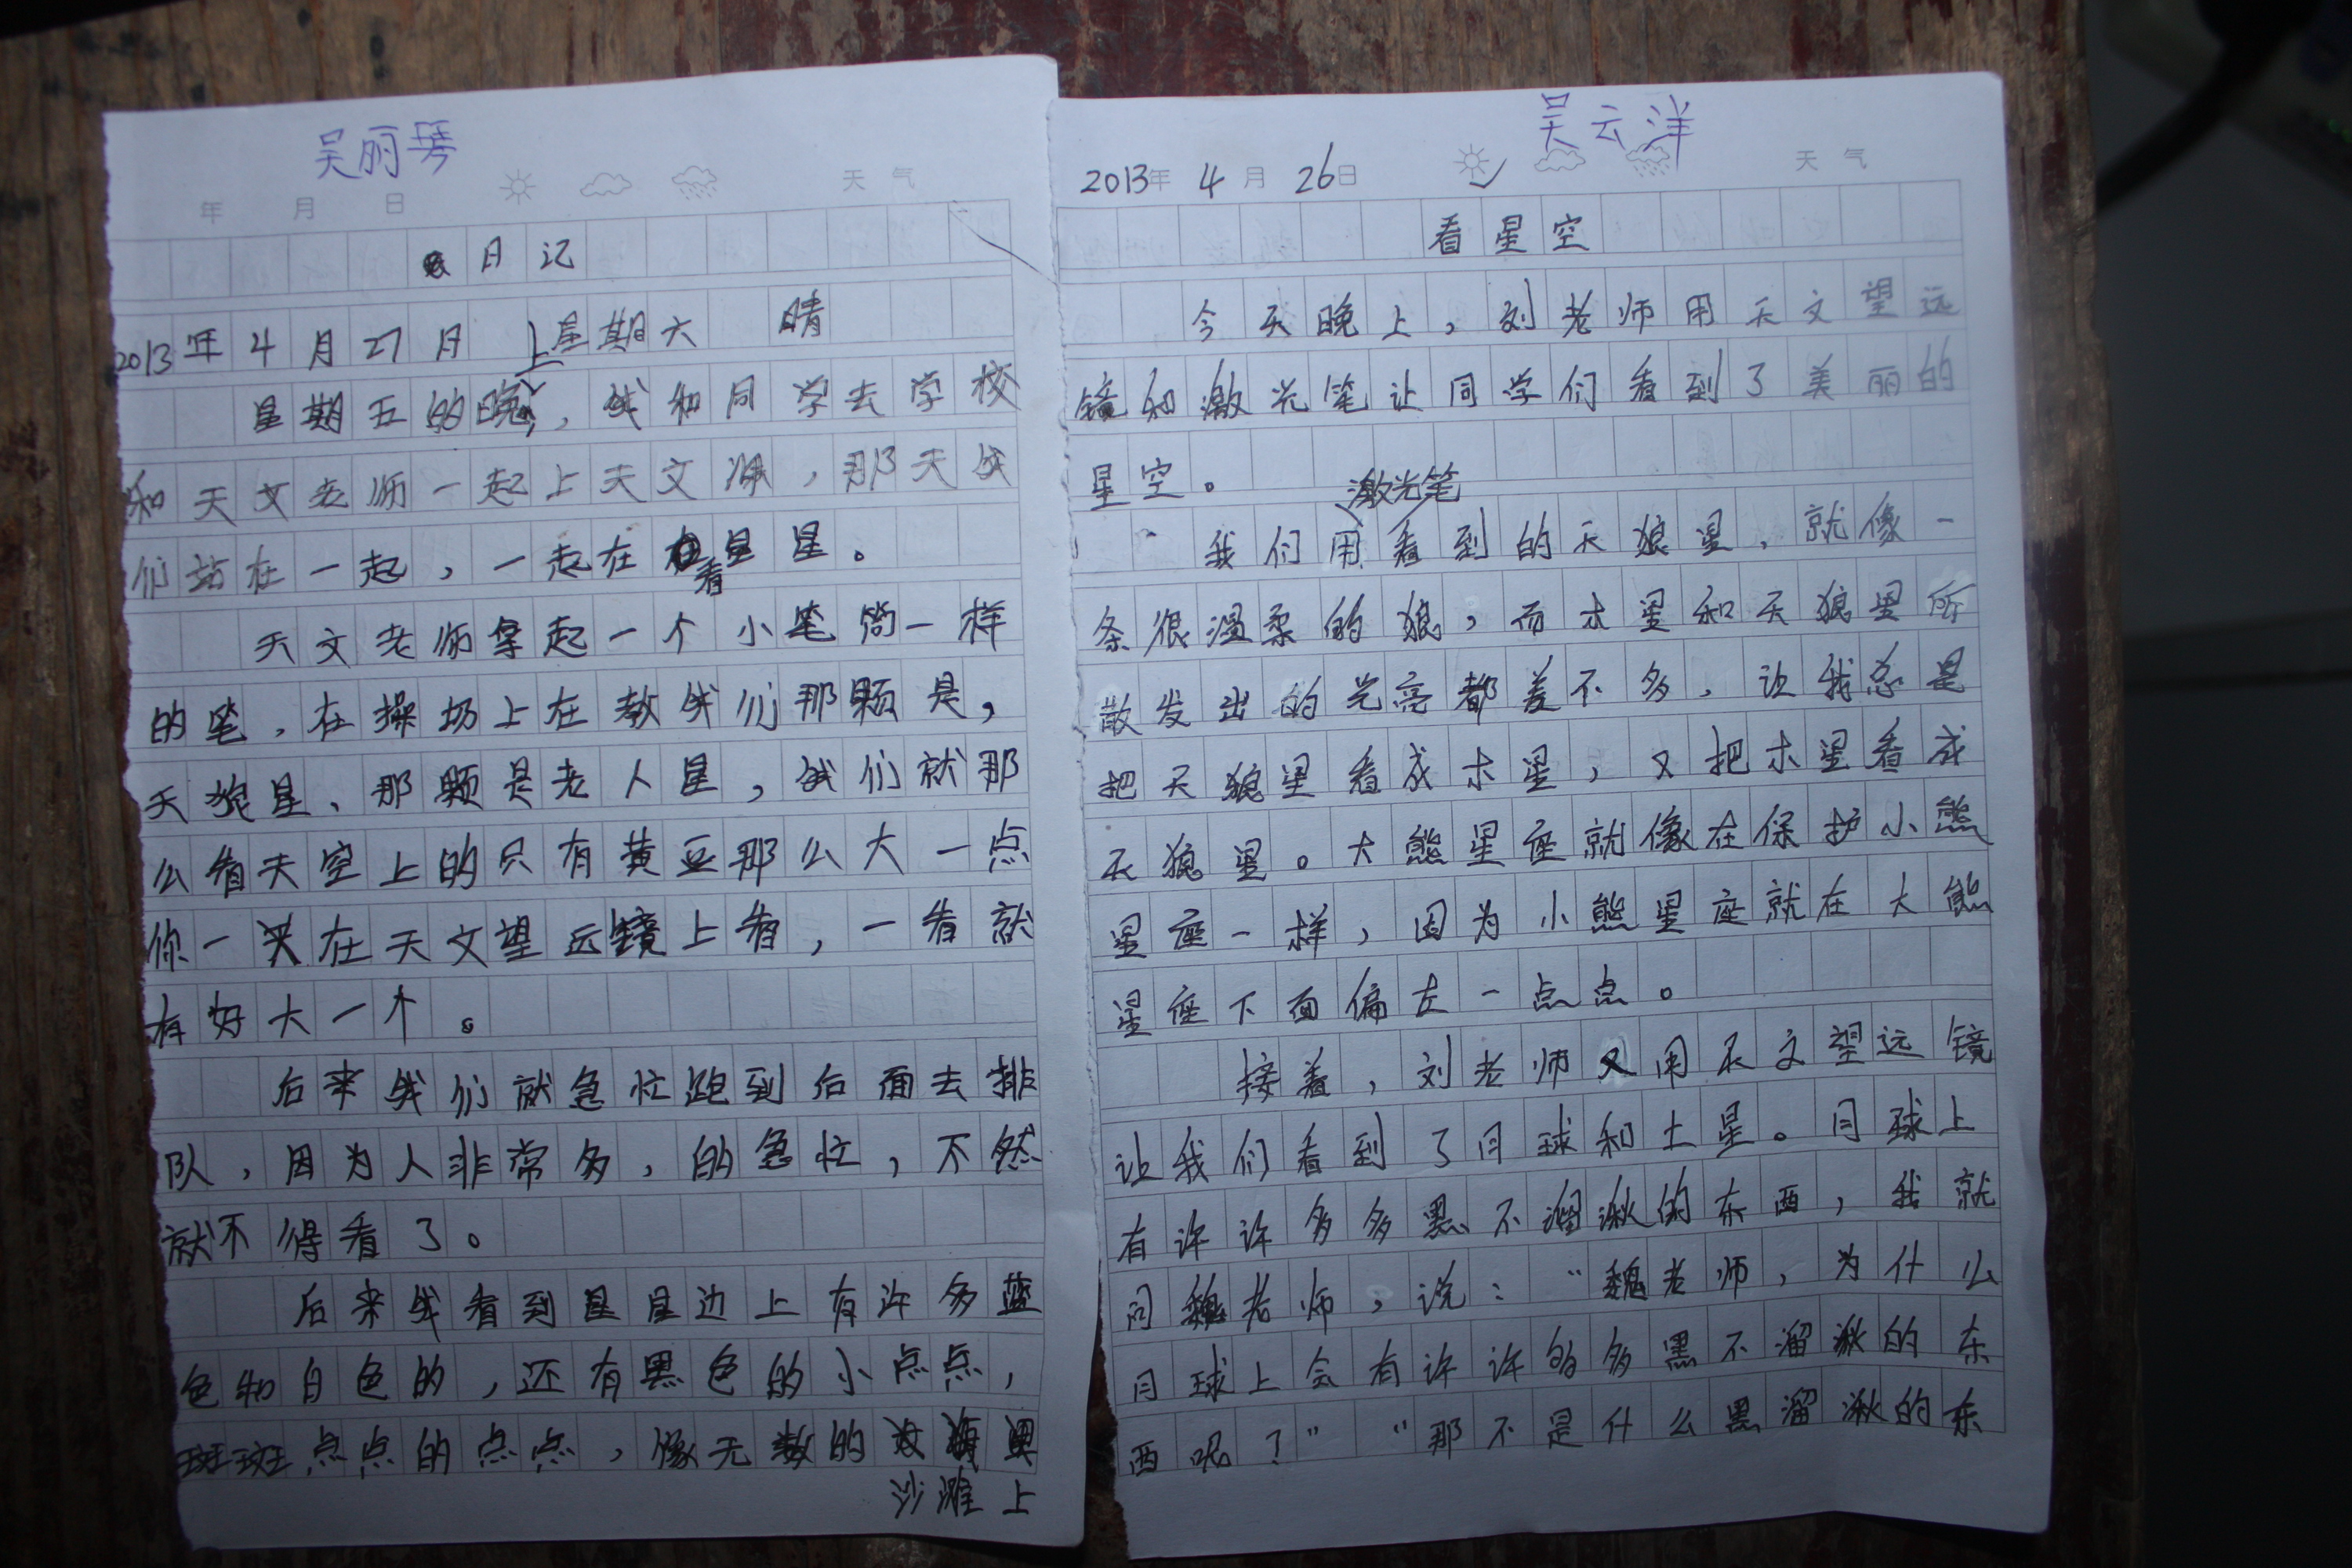 吴丽琴
年 月 日 天气
日记
2013年4月27日 星期六 晴
星期五的晚上，我和同学去学校
和天文老师一起上天文课，那天我
们站在一起，一起在看星星。
天文老师拿起一个小笔筒一样
的笔，在操场上在教我们那颗是，
天狼星、那颗是老人星，我们就那
么看天空上的只有黄豆那么大一点
你一来在天文望远镜上看，一看就
有好大一个。
后来我们就急忙跑到后面去排
队，因为人非常多，的急忙，不然
就不得看了。
后来我看到星星边上有许多蓝
色和白色的，还有黑色的小点点，
斑斑点点的点点，像无数的
沙滩上
吴云洋
2013年 4月 26日 天气
看星空
今天晚上，刘老师用天文望远
镜和激光笔让同学们看到了美丽的
星空。
我们用激光笔看到的天狼星，就像一
条很温柔的狼，而木星和天狼星所
散发出的光亮都差不多，让我总是
把天狼星看成木星，又把木星看成
天狼星。大熊星座就像在保护小熊
星座一样，因为小熊星座就在大熊
星座下面偏左一点点。
接着，刘老师又用天文望远镜
让我们看到了月球和土星。月球上
有许许多多黑不溜湫的东西，我就
问魏老师，说：“魏老师，为什么
月球上会有许许多多黑不溜湫的东
西呢？”“那不是什么黑溜湫的东